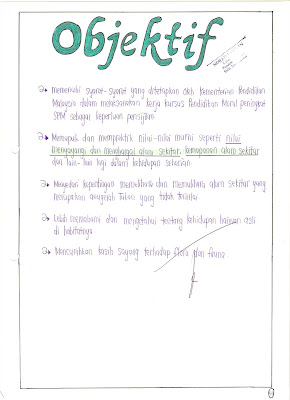 Objektif
Memenuhi syarat-syarat yang ditetapkan oleh Kementerian Pendidikan
Malaysia dalam melaksanakan kerja kursus Pendidikan Moral peringkat
SPM sebagai keperluan persijilan
Memupuk dan mempraktik nilai-nilai murni seperti nilai
menyayangi dan menghargai alam sekitar, kemapanan alam sekitar
dan lain-lain lagi dalam kehidupan seharian.
Menyedari kepentingan memelihara dan memulihara alam sekitar yang
merupakan anugerah Tuhan yang tidak ternilai
Lebih memahami dan mengetahui tentang kehidupan haiwan asli
di habitatnya
Mencurahkan kasih sayang terhadap flora dan fauna.